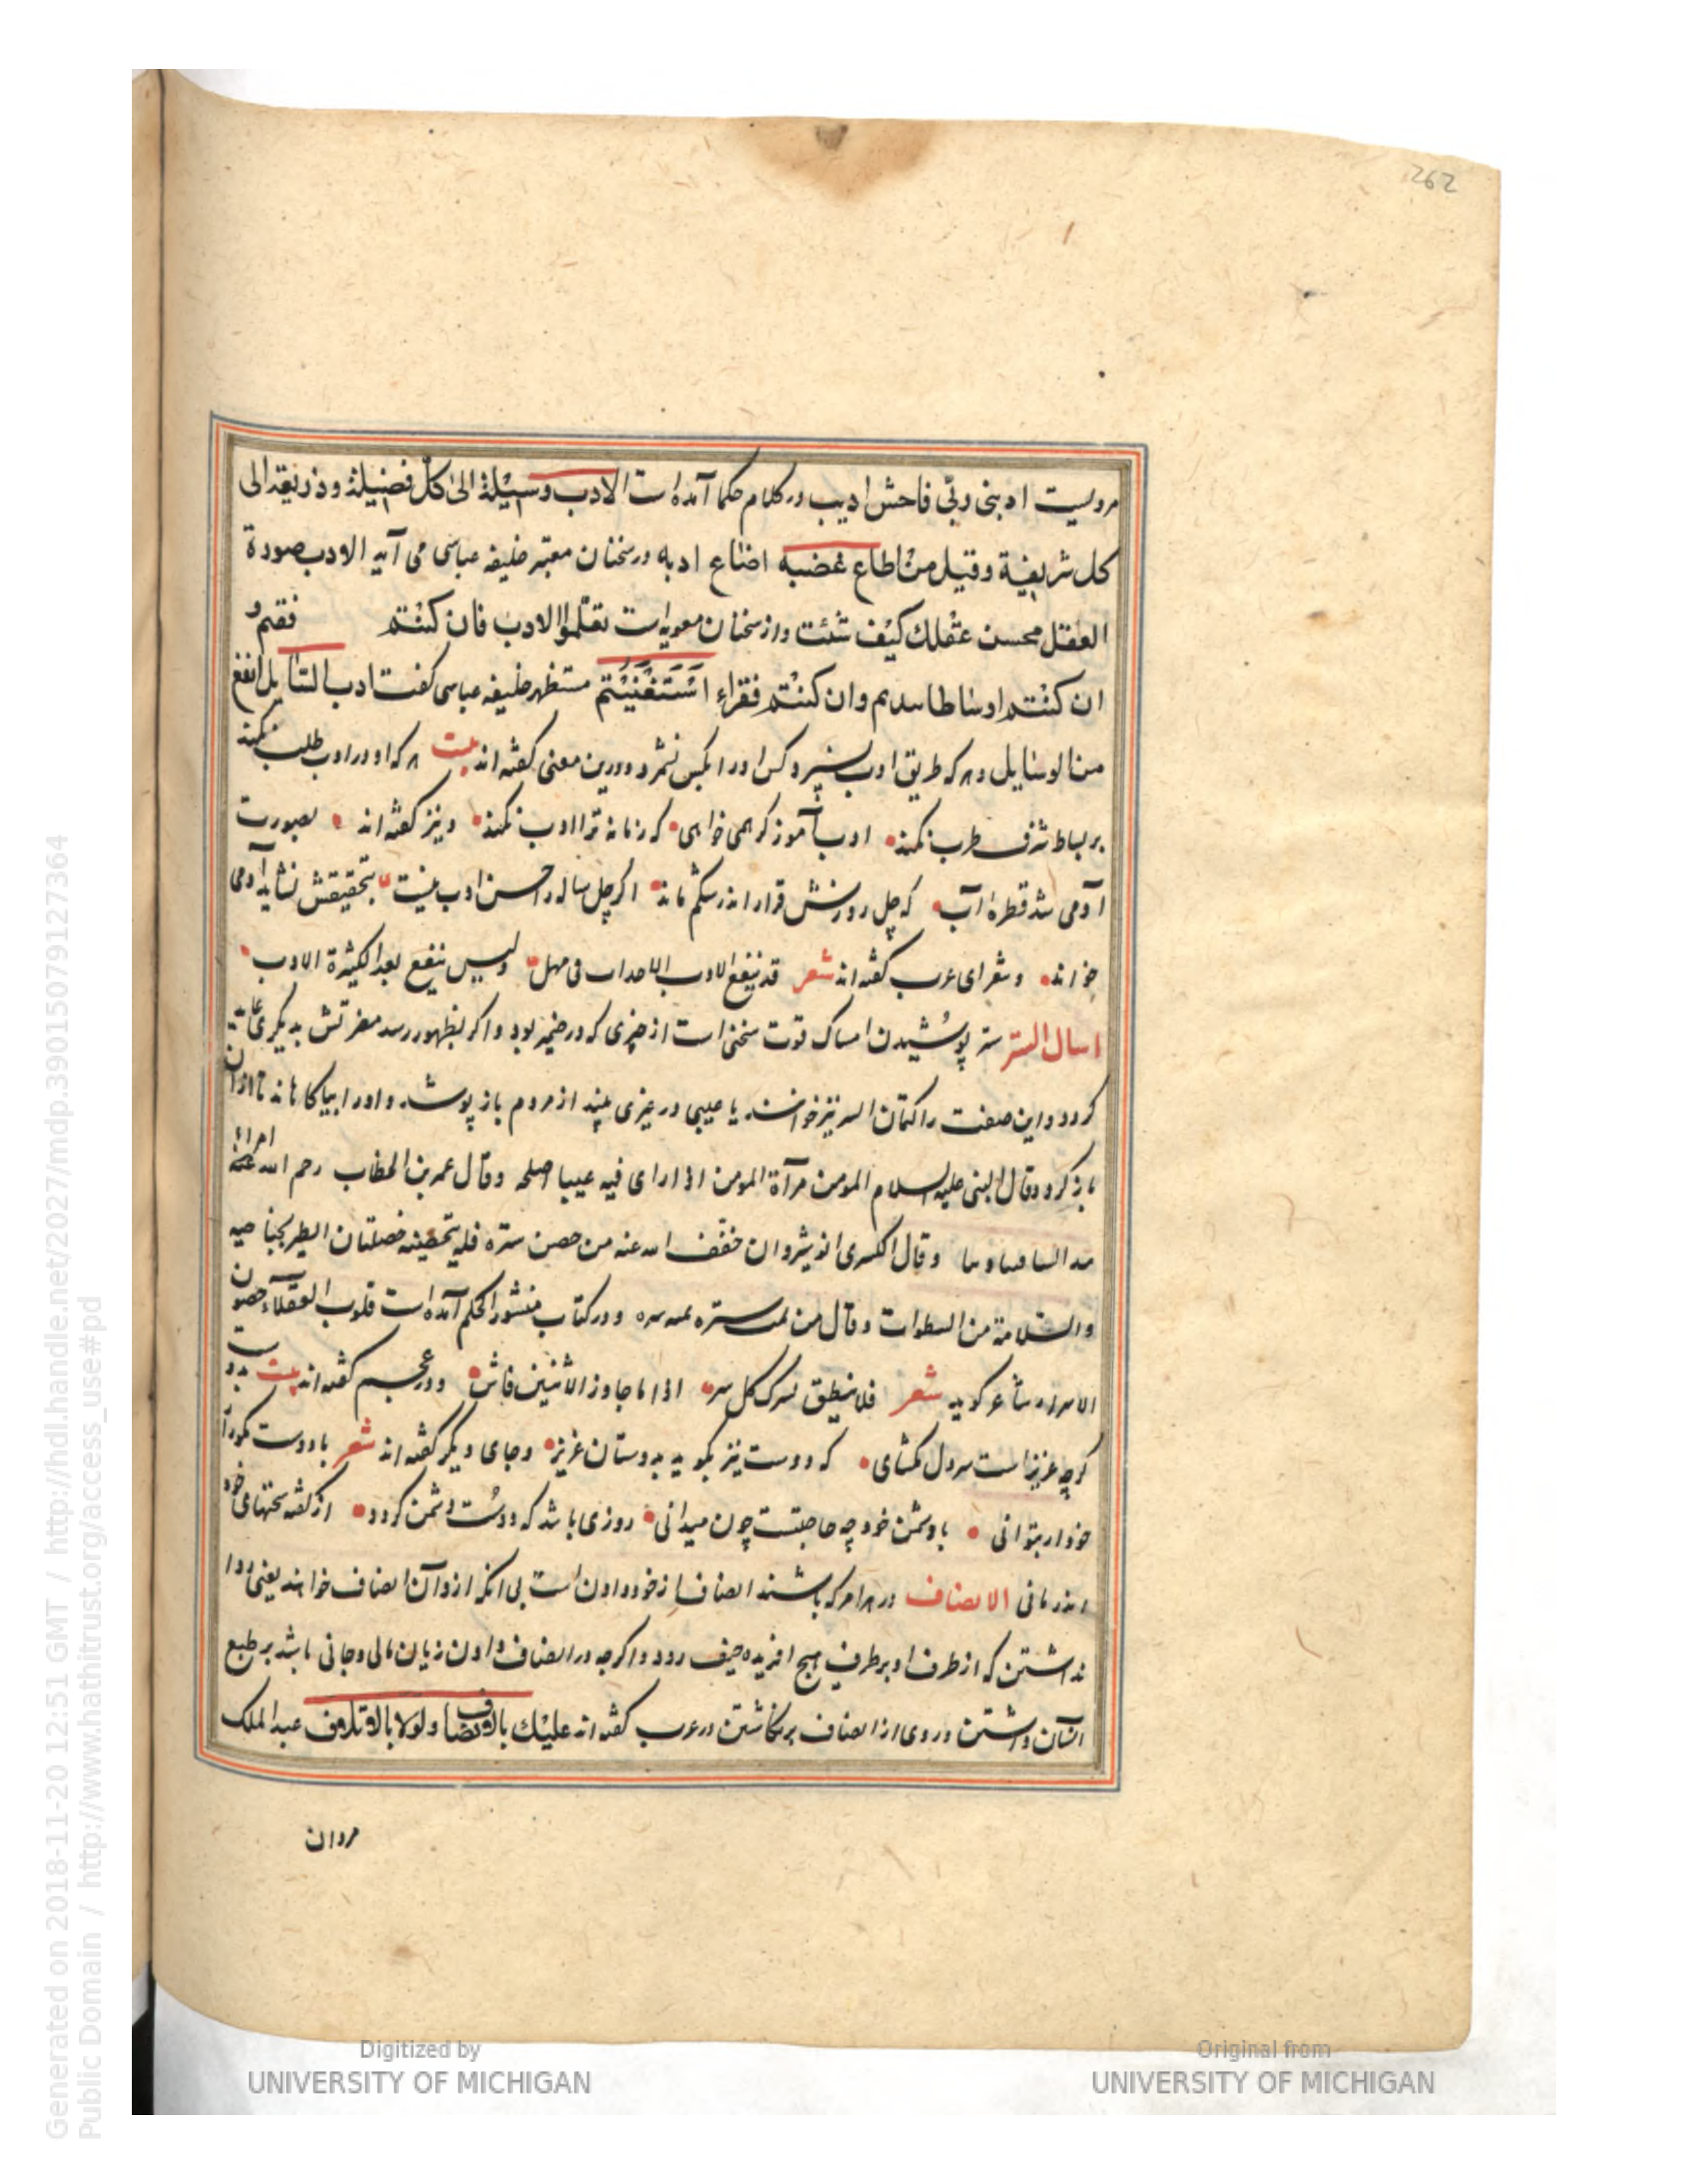 262
مرویست ادبنی ربّی فاحش ادیب در کلام حکما آمده است الادب وسیلة الی کلّ فضیلة و ذریعة الی
کل شریفیة وقیل من اطاع غضبه اضاع ادبه در سخنان معتبر خلیفه عباسی می آید الادب صورة
العقل محسن عقلک کیف شئت و از سخنان معویه است تعلّموا الادب فان کنتم
ان کنتم اوساطا سدتم وان کنتم فقراء استغنیتم مستظهر خلیفه عباسی گفت ادب السایل انفع
من الوسایل و هر که طریق ادب نسپرد کس او را بکس نشمرد و درین معنی گفته اند بیت هر که او در ادب طلب نکند
بر بساط شرف طرب نکند ادب آموز گر همی خواهی که زمانه ترا ادب نکند و نیز گفته اند بصورت
آدمی شد قطره آب که چل روزش قرار اندر شکم ماند اگر چل ساله را حسن ادب نیست بتحقیقش نشاید آدمی
خواند و شعرای عرب گفته اند شعر قد ینفع الادب الاحداث فی مهل ولیس ینفع بعد الکثرة الادب
اسال الستر ستر پوشیدن امساک قوت سخن است از چیزی که در ضمیر بود و اگر بظهور رسد مضرتش بدیگری عاید
گردد و این صفت را کتمان السر نیز خوانند یا عیبی در عزیزی بیند از مردم باز پوشد و او را بیاگاهاند تا از آن
باز گردد وقال النبی علیه السلام المومن مرآة المومن اذا رای فیه عیبا اصلحه وقال عمر بن الخطاب رحم الله امراء
وقال الکسری انوشروان خفف الله عنه من حصن ستره فله بتحصینه خصلتان الظفر بحاجته
والسلامة من السطوات وقال من ستره و در کتاب منثور الحکم آمده است قلوب العقلاء حصون
الاسرار شاعر گوید شعر فلا ینطق بسرک کل سر اذا ما جاوز الاثنین فاش و در عجم گفته اند بیت بدوست
گرچه عزیز است سر دل مگشای که دوست نیز بگوید بدوستان عزیز و جای دیگر گفته اند شعر با دوست مگو راز
خود ار بتوانی با دشمن خود چه حاجتست چون میدانی روزی باشد که دوست دشمن گردد از گفته سخنهای خود
اندر مانی الانصاف در هر امر که باشند انصاف از خود دادن است بی آنکه از و آن انصاف خواهند یعنی روا
نداشتن که از طرف او بر طرف هیچ آفریده حیف رود و اگرچه در انصاف دادن زیان مالی و جانی باشد بر طبع
آسان داشتن و روی از انصاف برنگاشتن در عرب گفته اند علیک عبد الملک
مروان
Generated on 2018-11-20 12:51 GMT / http://hdl.handle.net/2027/mdp.39015079127364
Public Domain / http://www.hathitrust.org/access_use#pd
Digitized by
UNIVERSITY OF MICHIGAN
Original from
UNIVERSITY OF MICHIGAN